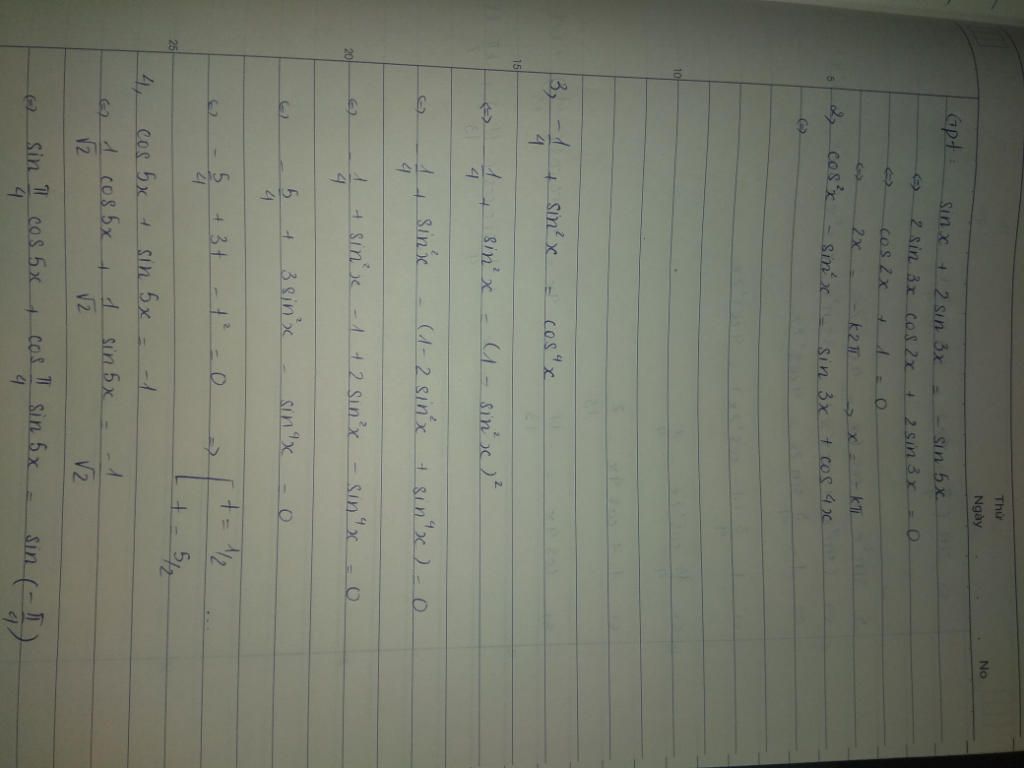 Thứ
Ngày . . No
Gpt: sin x + 2 sin 3x = - sin 5x
⇔ 2 sin 3x cos 2x + 2 sin 3x = 0
⇔ cos 2x + 1 = 0
⇔ 2x = - k2π → x = - kπ
5
2, cos²x - sin²x = sin 3x + cos 4x
⇔
10
15
3, -1/4 + sin²x = cos⁴x
⇔ -1/4 + sin²x = (1 - sin²x)²
⇔ -1/4 + sin²x - (1 - 2 sin²x + sin⁴x) = 0
20
⇔ -1/4 + sin²x - 1 + 2 sin²x - sin⁴x = 0
⇔ -5/4 + 3 sin²x - sin⁴x = 0
⇔ -5/4 + 3t - t² = 0 ⇒ [ t = 1/2 ...
t = 5/2
25
4, cos 5x + sin 5x = -1
⇔ 1/√2 cos 5x + 1/√2 sin 5x = -1/√2
⇔ sin π/4 cos 5x + cos π/4 sin 5x = sin (-π/4)